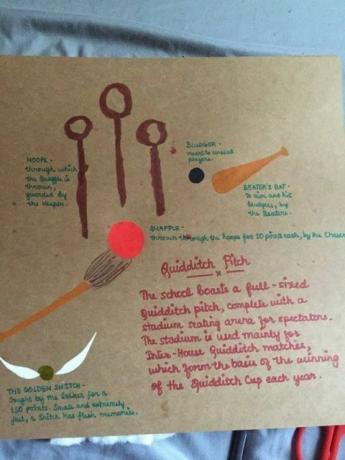 HOOPS -
through which
the Quaffle is
thrown,
guarded by
the Keeper.
BLUDGER -
meant to unseat
players.
BEATER'S BAT -
To aim and hit
Bludgers, by
the Beaters.
QUAFFLE -
thrown through the hoops for 10 points each, by the Chasers
Quidditch Pitch
x
The school boasts a full-sized
Quidditch pitch, complete with a
stadium seating arena for spectators.
The stadium is used mainly for
Inter-House Quidditch matches,
which form the basis of the winning
of the Quidditch Cup each year.
THE GOLDEN SNITCH -
Sought by the Seeker for a
150 points. Small and extremely
fast, a Snitch has flesh memories.